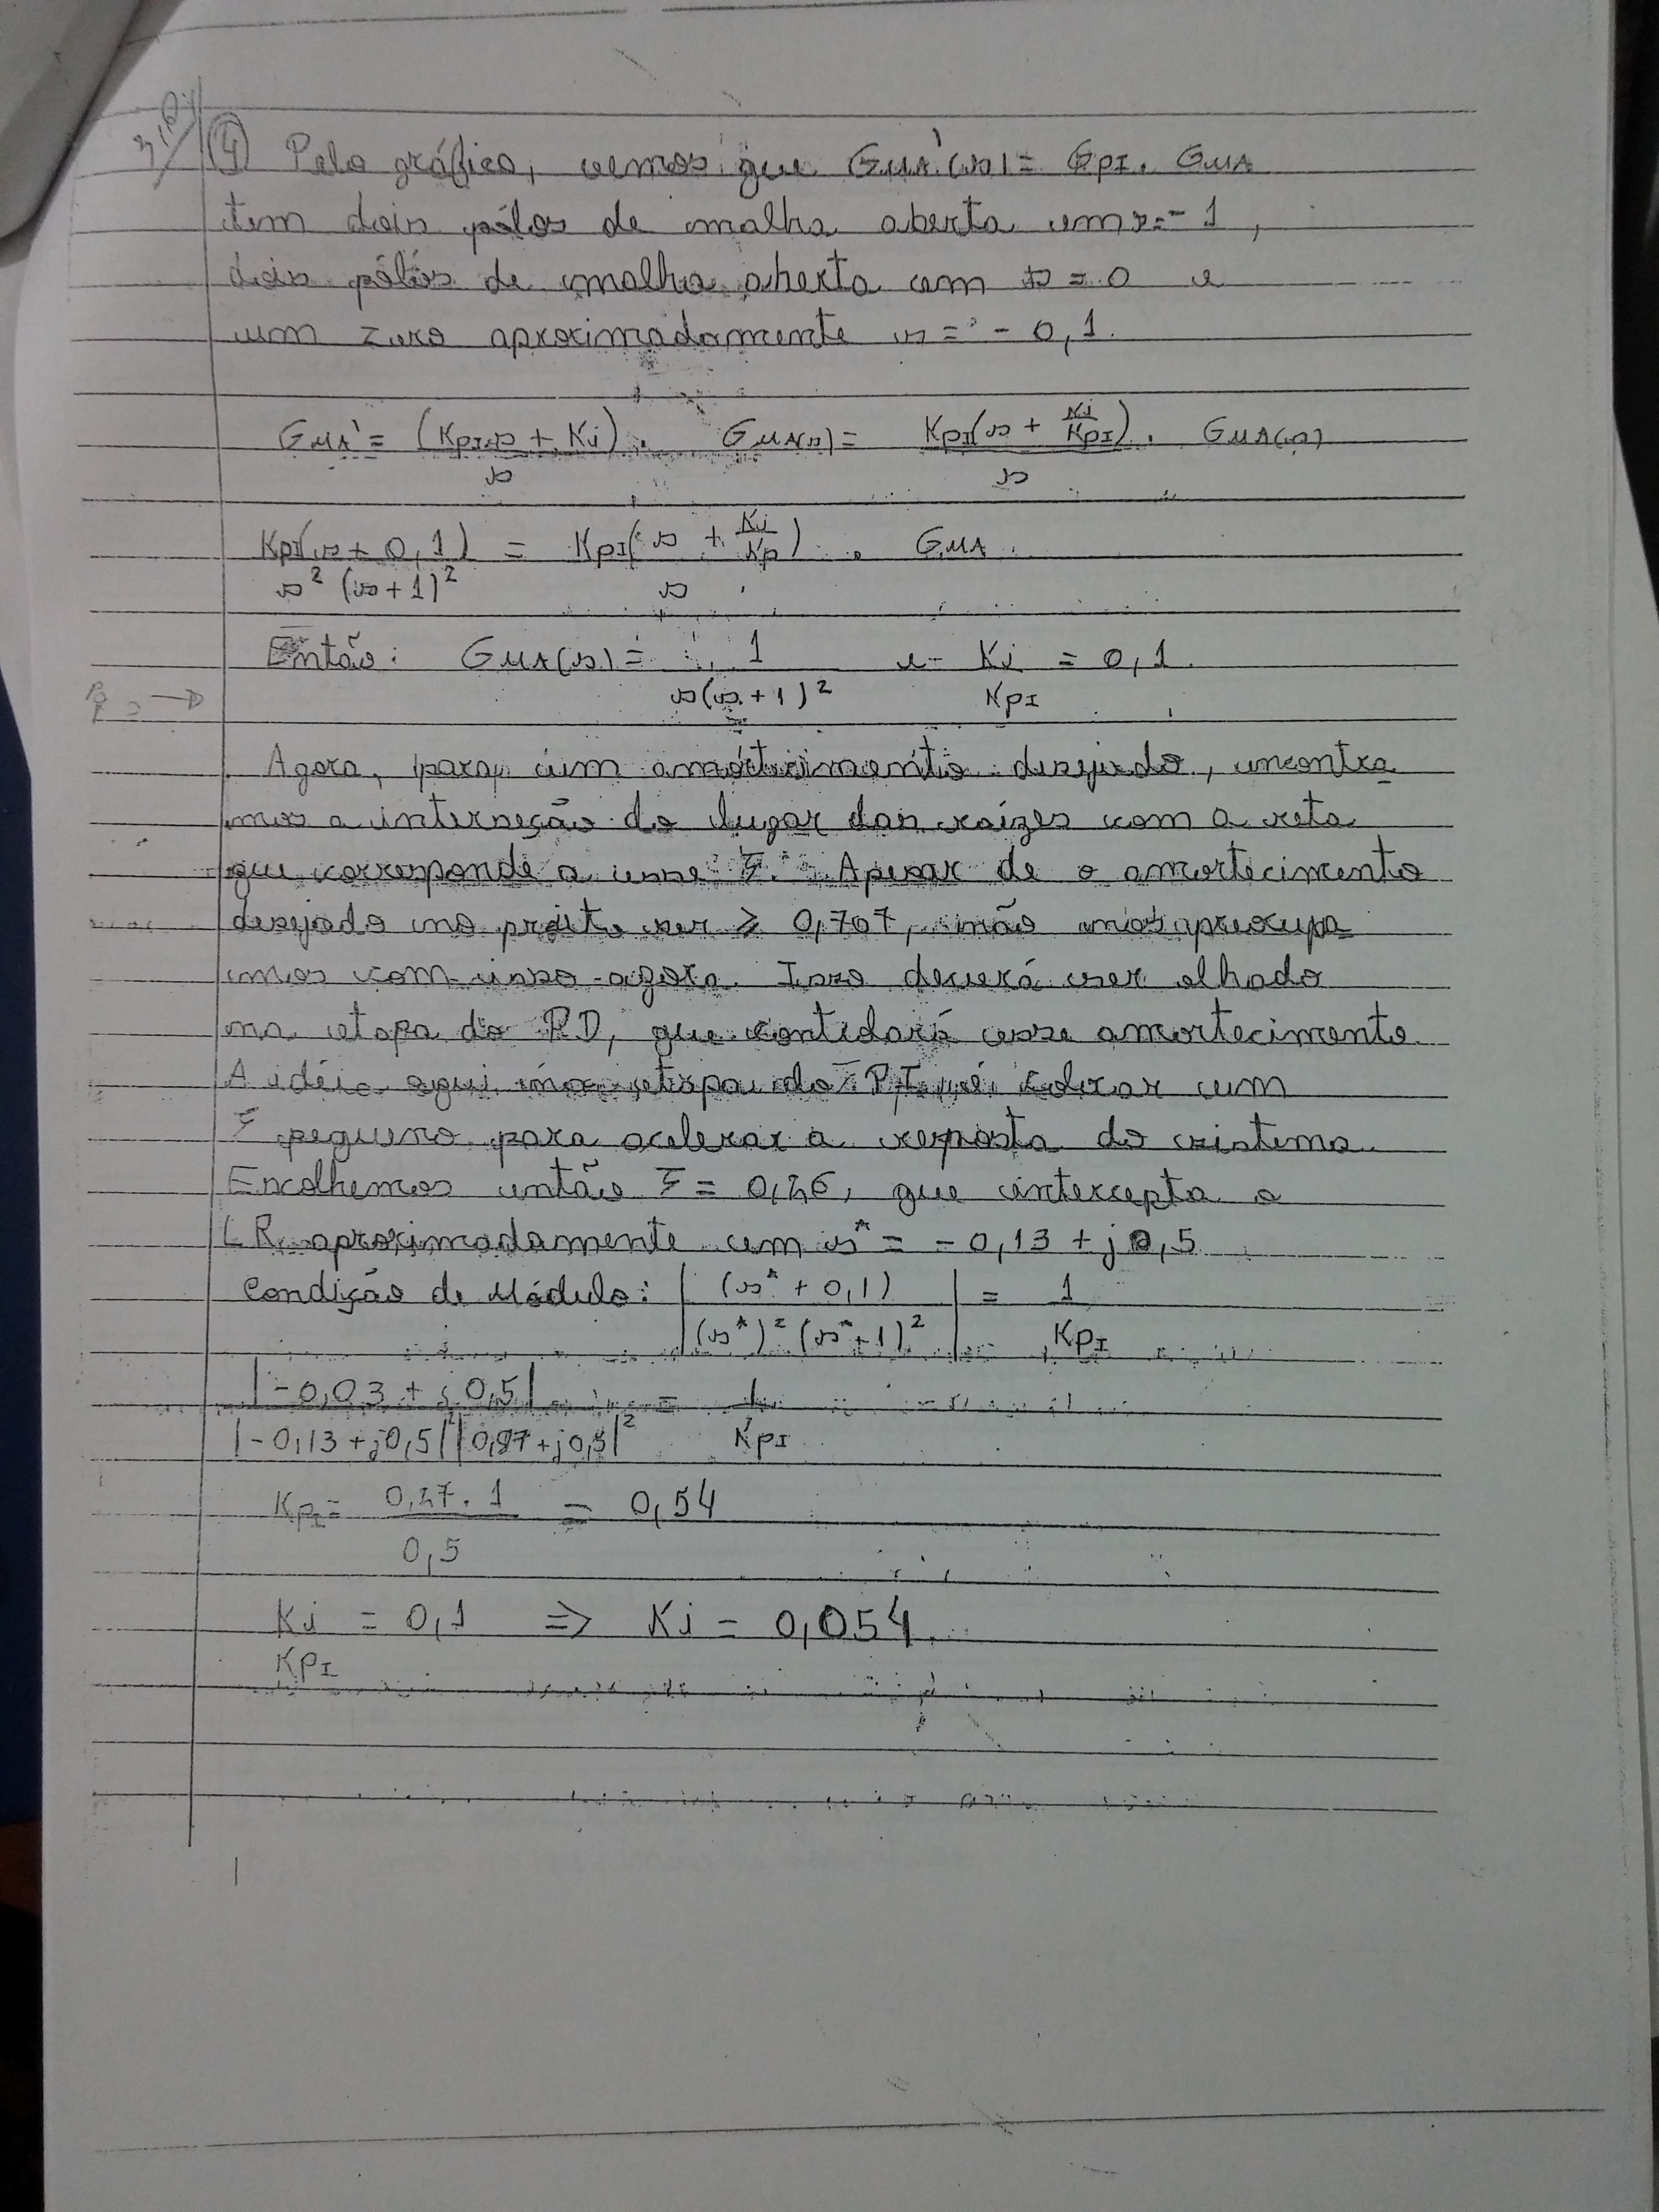 ④ Pelo gráfico, vemos que GMA'(s) = GPI. GMA
tem dois pólos de malha aberta em s=-1,
dois pólos de malha aberta em s = 0 e
um zero aproximadamente s = - 0,1.
GMA' = (KPI.s + Ki) / s . GMA(s) = KPI(s + Ki/KPI) / s . GMA(s)
KPI(s + 0,1) / s² (s+1)² = KPI(s + Ki/Kp) / s . GMA
Então: GMA(s) = 1 / s(s+1)² e Ki / KPI = 0,1
Agora, para um amortecimento desejado, encontra
mos a interseção do lugar das raízes com a reta
que corresponde a esse ξ. Apesar de o amortecimento
desejado no projeto ser ≥ 0,707, não nos preocupa
mos com isso agora. Isso deverá ser olhado
na etapa do PD, que contidará esse amortecimento
A idéia aqui na etapa do PI é cobrar um
ξ pequeno para acelerar a resposta do sistema.
Escolhemos então ξ = 0,26, que intercepta o
LR aproximadamente em s* = - 0,13 + j0,5
Condição de Módulo: | (s* + 0,1) / (s*)² (s*+1)² | = 1 / KPI
|-0,03 + j 0,5| / |-0,13+j0,5|² |0,87+j0,5|² = 1 / KPI
KPI = 0,27. 1 / 0,5 = 0,54
Ki / KPI = 0,1 => Ki = 0,054.